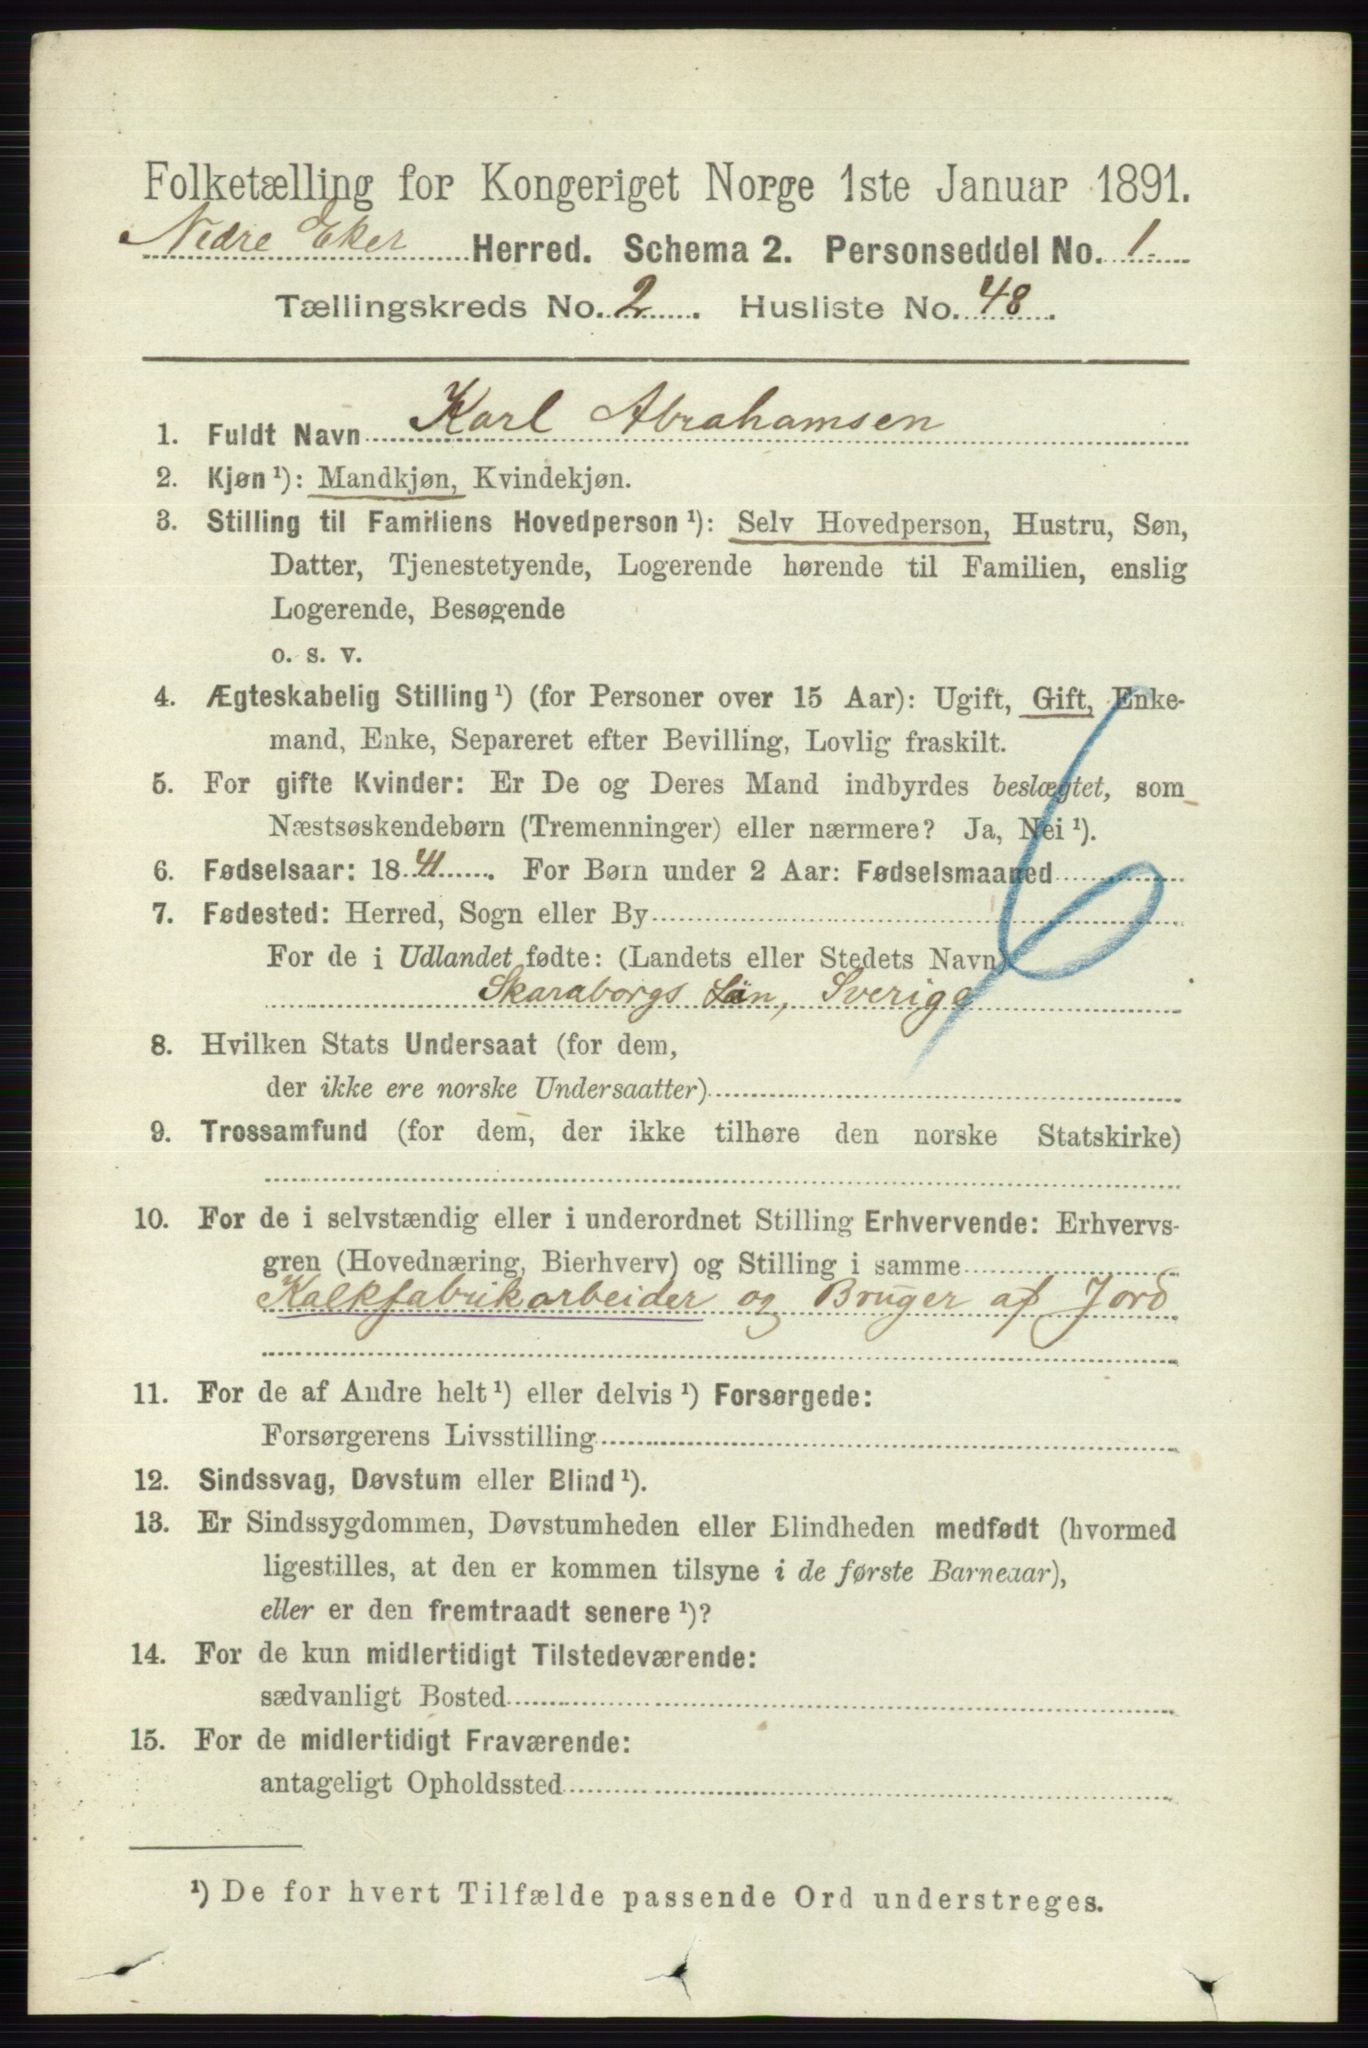 Folketælling for Kongeriget Norge 1ste Januar 1891.
Nedre Eker Herred. Schema 2. Personseddel No. 1.
Tællingskreds No. 2. Husliste No. 48.
1. Fuldt Navn Karl Abrahamsen
2. Kjøn¹): Mandkjøn, Kvindekjøn.
3. Stilling til Familiens Hovedperson¹): Selv Hovedperson, Hustru, Søn,
Datter, Tjenestetyende, Logerende hørende til Familien, enslig
Logerende, Besøgende
o. s. v.
4. Ægteskabelig Stilling¹) (for Personer over 15 Aar): Ugift, Gift, Enke-
mand, Enke, Separeret efter Bevilling, Lovlig fraskilt.
5. For gifte Kvinder: Er De og Deres Mand indbyrdes beslægtet, som
Næstsøskendebørn (Tremenninger) eller nærmere? Ja, Nei¹).
6. Fødselsaar: 1841. For Børn under 2 Aar: Fødselsmaaned
7. Fødested: Herred, Sogn eller By
For de i Udlandet fødte: (Landets eller Stedets Navn)
Skaraborgs Län, Sverige
8. Hvilken Stats Undersaat (for dem,
der ikke ere norske Undersaatter)
9. Trossamfund (for dem, der ikke tilhøre den norske Statskirke)
10. For de i selvstændig eller i underordnet Stilling Erhvervende: Erhvervs-
gren (Hovednæring, Bierhverv) og Stilling i samme
Kalkfabrikarbeider og Bruger af Jord
11. For de af Andre helt¹) eller delvis¹) Forsørgede:
Forsørgerens Livsstilling
12. Sindssvag, Døvstum eller Blind¹).
13. Er Sindssygdommen, Døvstumheden eller Blindheden medfødt (hvormed
ligestilles, at den er kommen tilsyne i de første Barneaar),
eller er den fremtraadt senere¹)?
14. For de kun midlertidigt Tilstedeværende:
sædvanligt Bosted
15. For de midlertidigt Fraværende:
antageligt Opholdssted
¹) De for hvert Tilfælde passende Ord understreges.